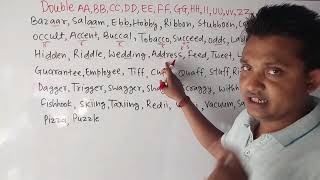 Double AA, BB, CC, DD, EE, FF, GG, HH, II, UU, VV, ZZ,
Bazaar, Salaam, Ebb, Hobby, Ribbon, Stubborn,
Occult, Accent, Buccal, Tobacco, Succeed, odds,
Hidden, Riddle, Wedding, Address, Feed, Tweet,
Guarantee, Employee, Tiff, Quaff, Stuff,
Dagger, Trigger, Swagger, Scraggy,
Fishhook, Skiing, Taxiing, Vacuum,
Pizza, Puzzle